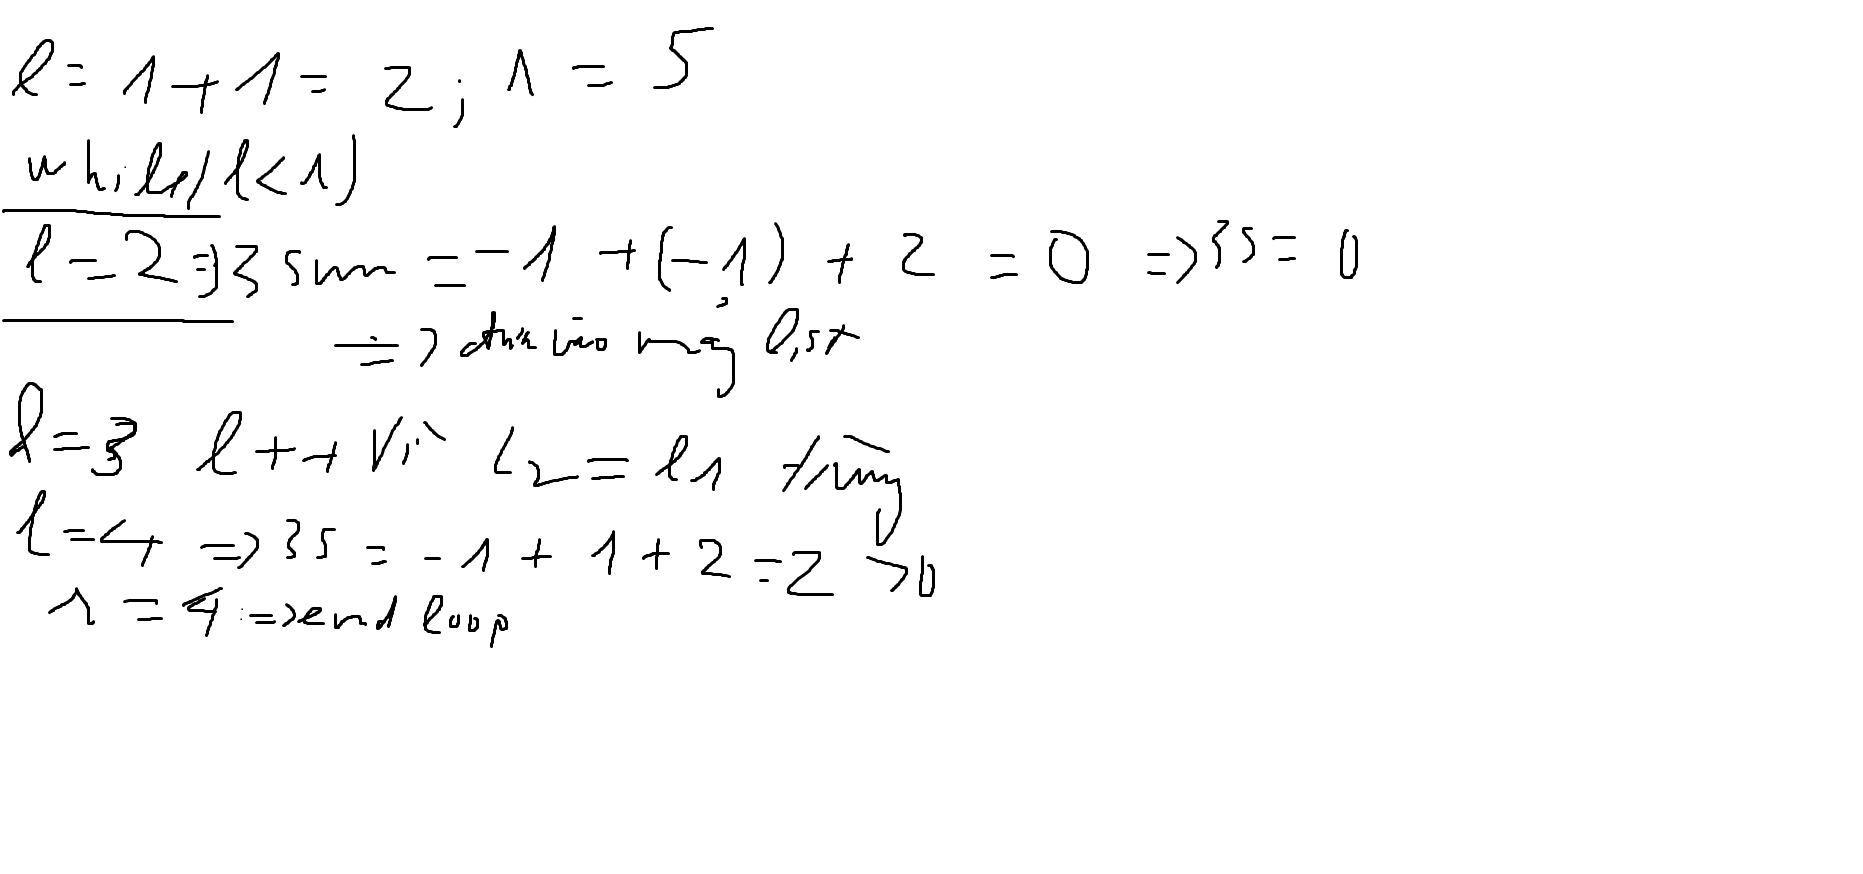 l = 1 + 1 = 2 ; r = 5
while (l < r)
l = 2 => 3 sum = -1 + (-1) + 2 = 0 => 3s = 0
=> vào mảg list
l = 3 l++ vì L2 = l1 trùng
l = 4 => 3s = -1 + 1 + 2 = 2 > 0
r = 4 => end loop